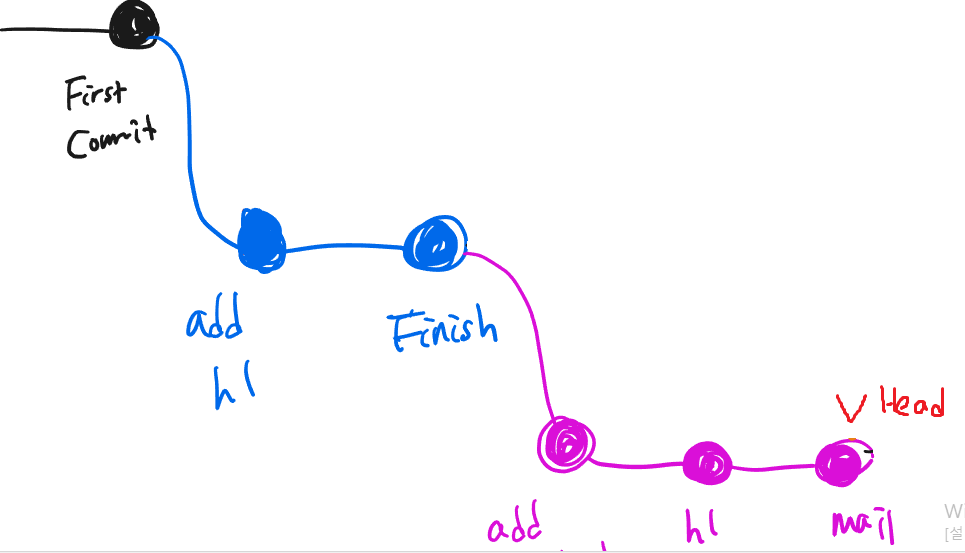 First
Commit
add
h1
Finish
Head
add
h1
mail
W
[설